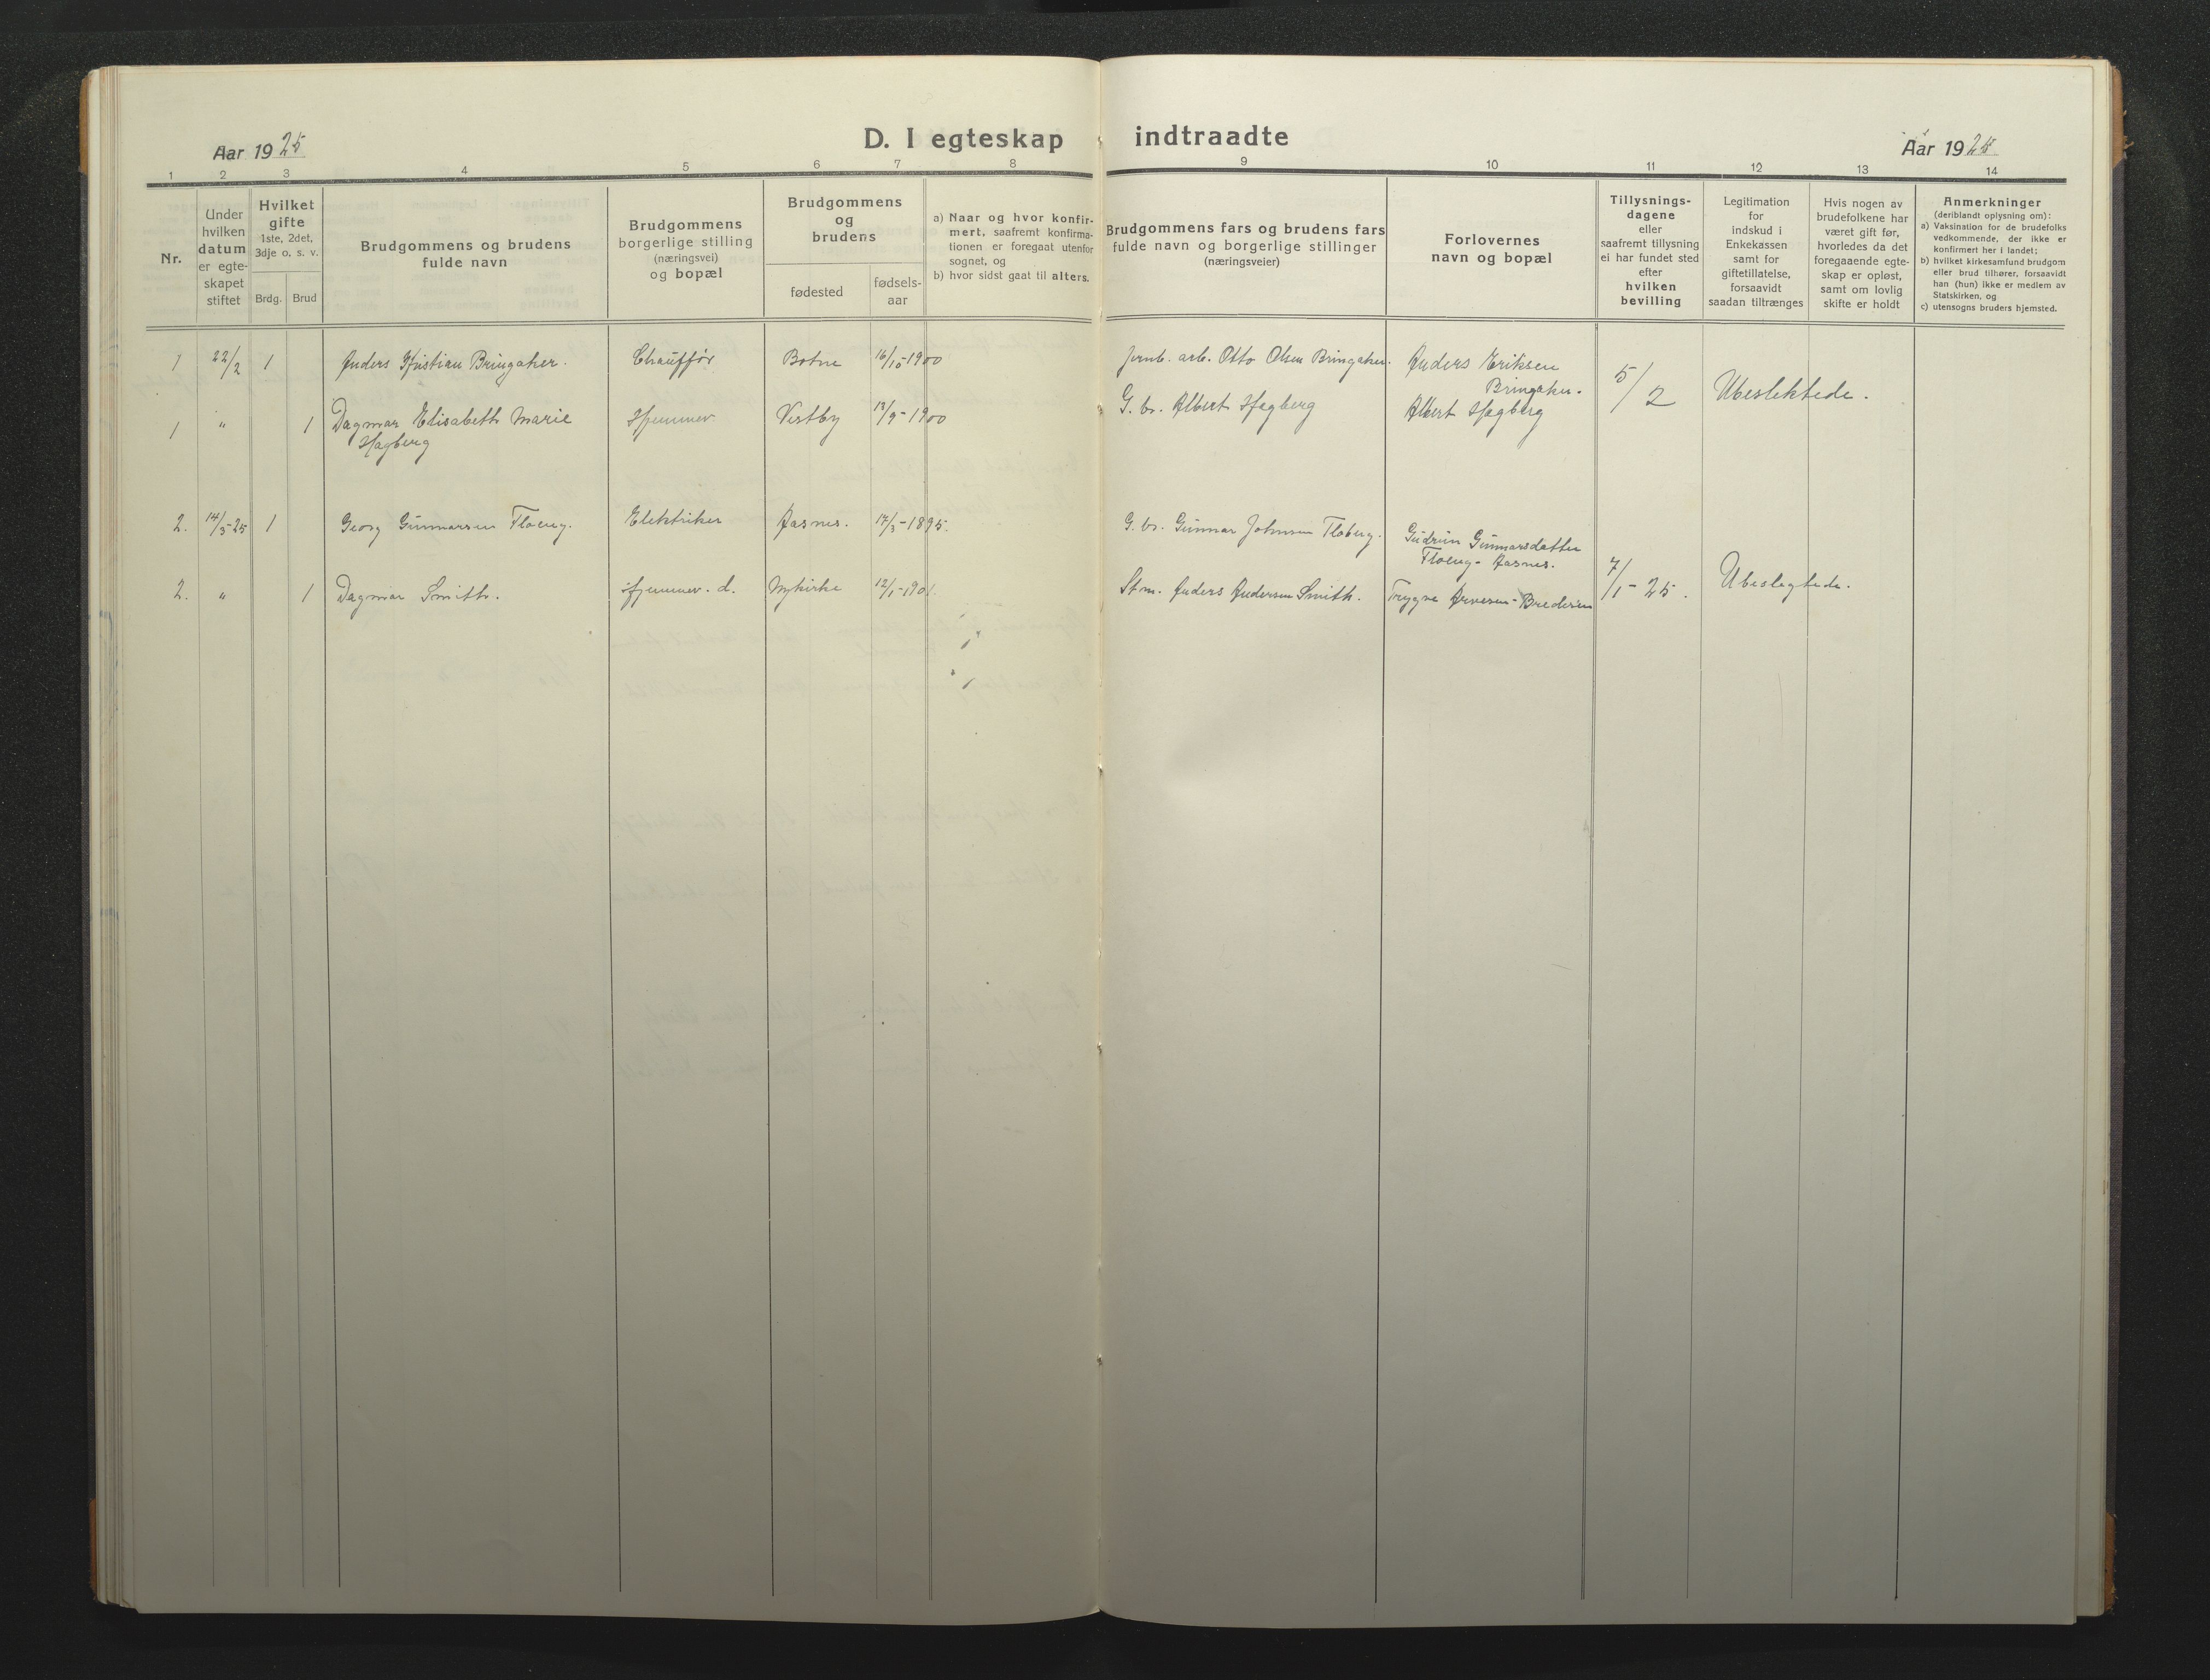 Aar 1925
D. I egteskap indtraadte
Aar 1925
1 2 3 4 5 6 7 8 9 10 11 12 13 14
Nr.
Under
hvilken
datum
er egte-
skapet
stiftet
Hvilket
gifte
1ste, 2det,
3dje o. s. v.
Brdg. Brud
Brudgommens og brudens
fulde navn
Brudgommens
borgerlige stilling
(næringsvei)
og bopæl
Brudgommens
og
brudens
fødested
fødsels-
aar
a) Naar og hvor konfir-
mert, saafremt konfirma-
tionen er foregaat utenfor
sognet, og
b) hvor sidst gaat til alters.
Brudgommens fars og brudens fars
fulde navn og borgerlige stillinger
(næringsveier)
Forlovernes
navn og bopæl
Tillysnings-
dagene
eller
saafremt tillysning
ei har fundet sted
efter
hvilken
bevilling
Legitimation
for
indskud i
Enkekassen
samt for
giftetillatelse,
forsaavidt
saadan tiltrænges
Hvis nogen av
brudefolkene har
været gift før,
hvorledes da det
foregaaende egte-
skap er opløst,
samt om lovlig
skifte er holdt
Anmerkninger
(deriblandt oplysning om):
a) Vaksination for de brudefolks
vedkommende, der ikke er
konfirmert her i landet;
b) hvilket kirkesamfund brudgom
eller brud tilhører, forsaavidt
han (hun) ikke er medlem av
Statskirken, og
c) utensogns bruders hjemsted.
1 22/2 1 Anders Kristian Bringaker. Chauffør Botne 16/10-1900 Jernb. arb. Otto Olsen Bringaker. Anders Eriksen
Bringaker. 5/2 Ubeslektede.
1 " 1 Dagmar Elisabeth Marie Hjemmev Vestby /9-1900 G. br. Albert Hagberg Albert Hagberg
Hagberg
2. 14/3-25 1 Georg Gunnarsen Floeng. Elektriker Aasnes. 17/3-1895. G. br. Gunnar Johnsen Floberg. Gudrun Gunnarsdatter
Floeng- Aasnes.
2. " 1 Dagmar Smith. Hjemmev. d. Nykirke 12/1-1901. Stm. Anders Andersen Smith. Trygve Arvesen- 7/1-25. Ubeslegtede.